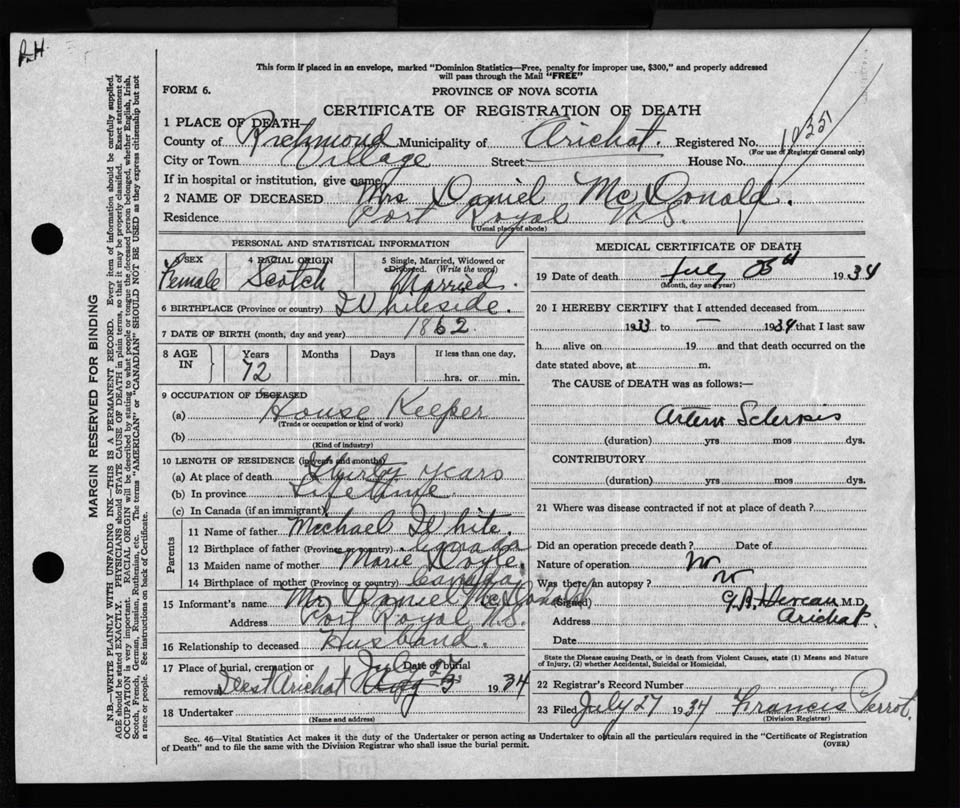 P.H.
This form if placed in an envelope, marked "Dominion Statistics—Free, penalty for improper use, $300," and properly addressed
will pass through the Mail "FREE"
FORM 6.
PROVINCE OF NOVA SCOTIA
CERTIFICATE OF REGISTRATION OF DEATH
1 PLACE OF DEATH—
County of Richmond Municipality of Arichat. Registered No.
(For use of Registrar General only)
City or Town Village Street House No.
If in hospital or institution, give name
2 NAME OF DECEASED Mrs Daniel McDonald.
Residence Port Royal N.S.
(Usual place of abode)
PERSONAL AND STATISTICAL INFORMATION
3 SEX Female
4 RACIAL ORIGIN Scotch
5 Single, Married, Widowed or Divorced. (Write the word) Married.
6 BIRTHPLACE (Province or country) Whiteside.
7 DATE OF BIRTH (month, day and year) 1862.
8 AGE IN Years Months Days If less than one day,
72 hrs. or min.
9 OCCUPATION OF DECEASED
(a) House Keeper
(Trade or occupation or kind of work)
(b)
(Kind of industry)
10 LENGTH OF RESIDENCE (in years and months)
(a) At place of death Thirty years
(b) In province Life time.
(c) In Canada (if an immigrant)
Parents
11 Name of father Michael White.
12 Birthplace of father (Province or country) Canada
13 Maiden name of mother Marie Doyle.
14 Birthplace of mother (Province or country) Canada
15 Informant's name Mr Daniel McDonald
Address Port Royal N.S.
16 Relationship to deceased Husband.
17 Place of burial, cremation or removal Date of burial
West Arichat July 1934
18 Undertaker
(Name and address)
MEDICAL CERTIFICATE OF DEATH
19 Date of death July 1934
(Month, day and year)
20 I HEREBY CERTIFY that I attended deceased from
1933 to — 1934 that I last saw
h alive on 19 and that death occurred on the
date stated above, at m.
The CAUSE of DEATH was as follows:—
Arterio Sclerosis
(duration) yrs mos dys.
CONTRIBUTORY
(duration) yrs. mos. dys.
21 Where was disease contracted if not at place of death?
Did an operation precede death? Date of
Nature of operation No
Was there an autopsy? No
(Signed) M.D.
Address Arichat.
Date
State the Disease causing Death, or in death from Violent Causes, state (1) Means and Nature
of Injury, (2) whether Accidental, Suicidal or Homicidal.
22 Registrar's Record Number
23 Filed July 27 1934 Francis Perrot.
(Division Registrar)
Sec. 46—Vital Statistics Act makes it the duty of the Undertaker or person acting as Undertaker to obtain all the particulars required in the "Certificate of Registration
of Death" and to file the same with the Division Registrar who shall issue the burial permit.
(OVER)
MARGIN RESERVED FOR BINDING
N.B.—WRITE PLAINLY WITH UNFADING INK—THIS IS A PERMANENT RECORD. Every item of information should be carefully supplied.
AGE should be stated EXACTLY. PHYSICIANS should STATE CAUSE OF DEATH in plain terms, so that it may be properly classified. Exact statement of
OCCUPATION is very important. RACIAL ORIGIN will be described by stating to what people or tongue the deceased person belonged, whether English, Irish,
Scotch, French, German, Russian, Ruthenian, etc. The terms "AMERICAN" or "CANADIAN" SHOULD NOT BE USED as they express citizenship but not
a race or people. See instructions on back of Certificate.